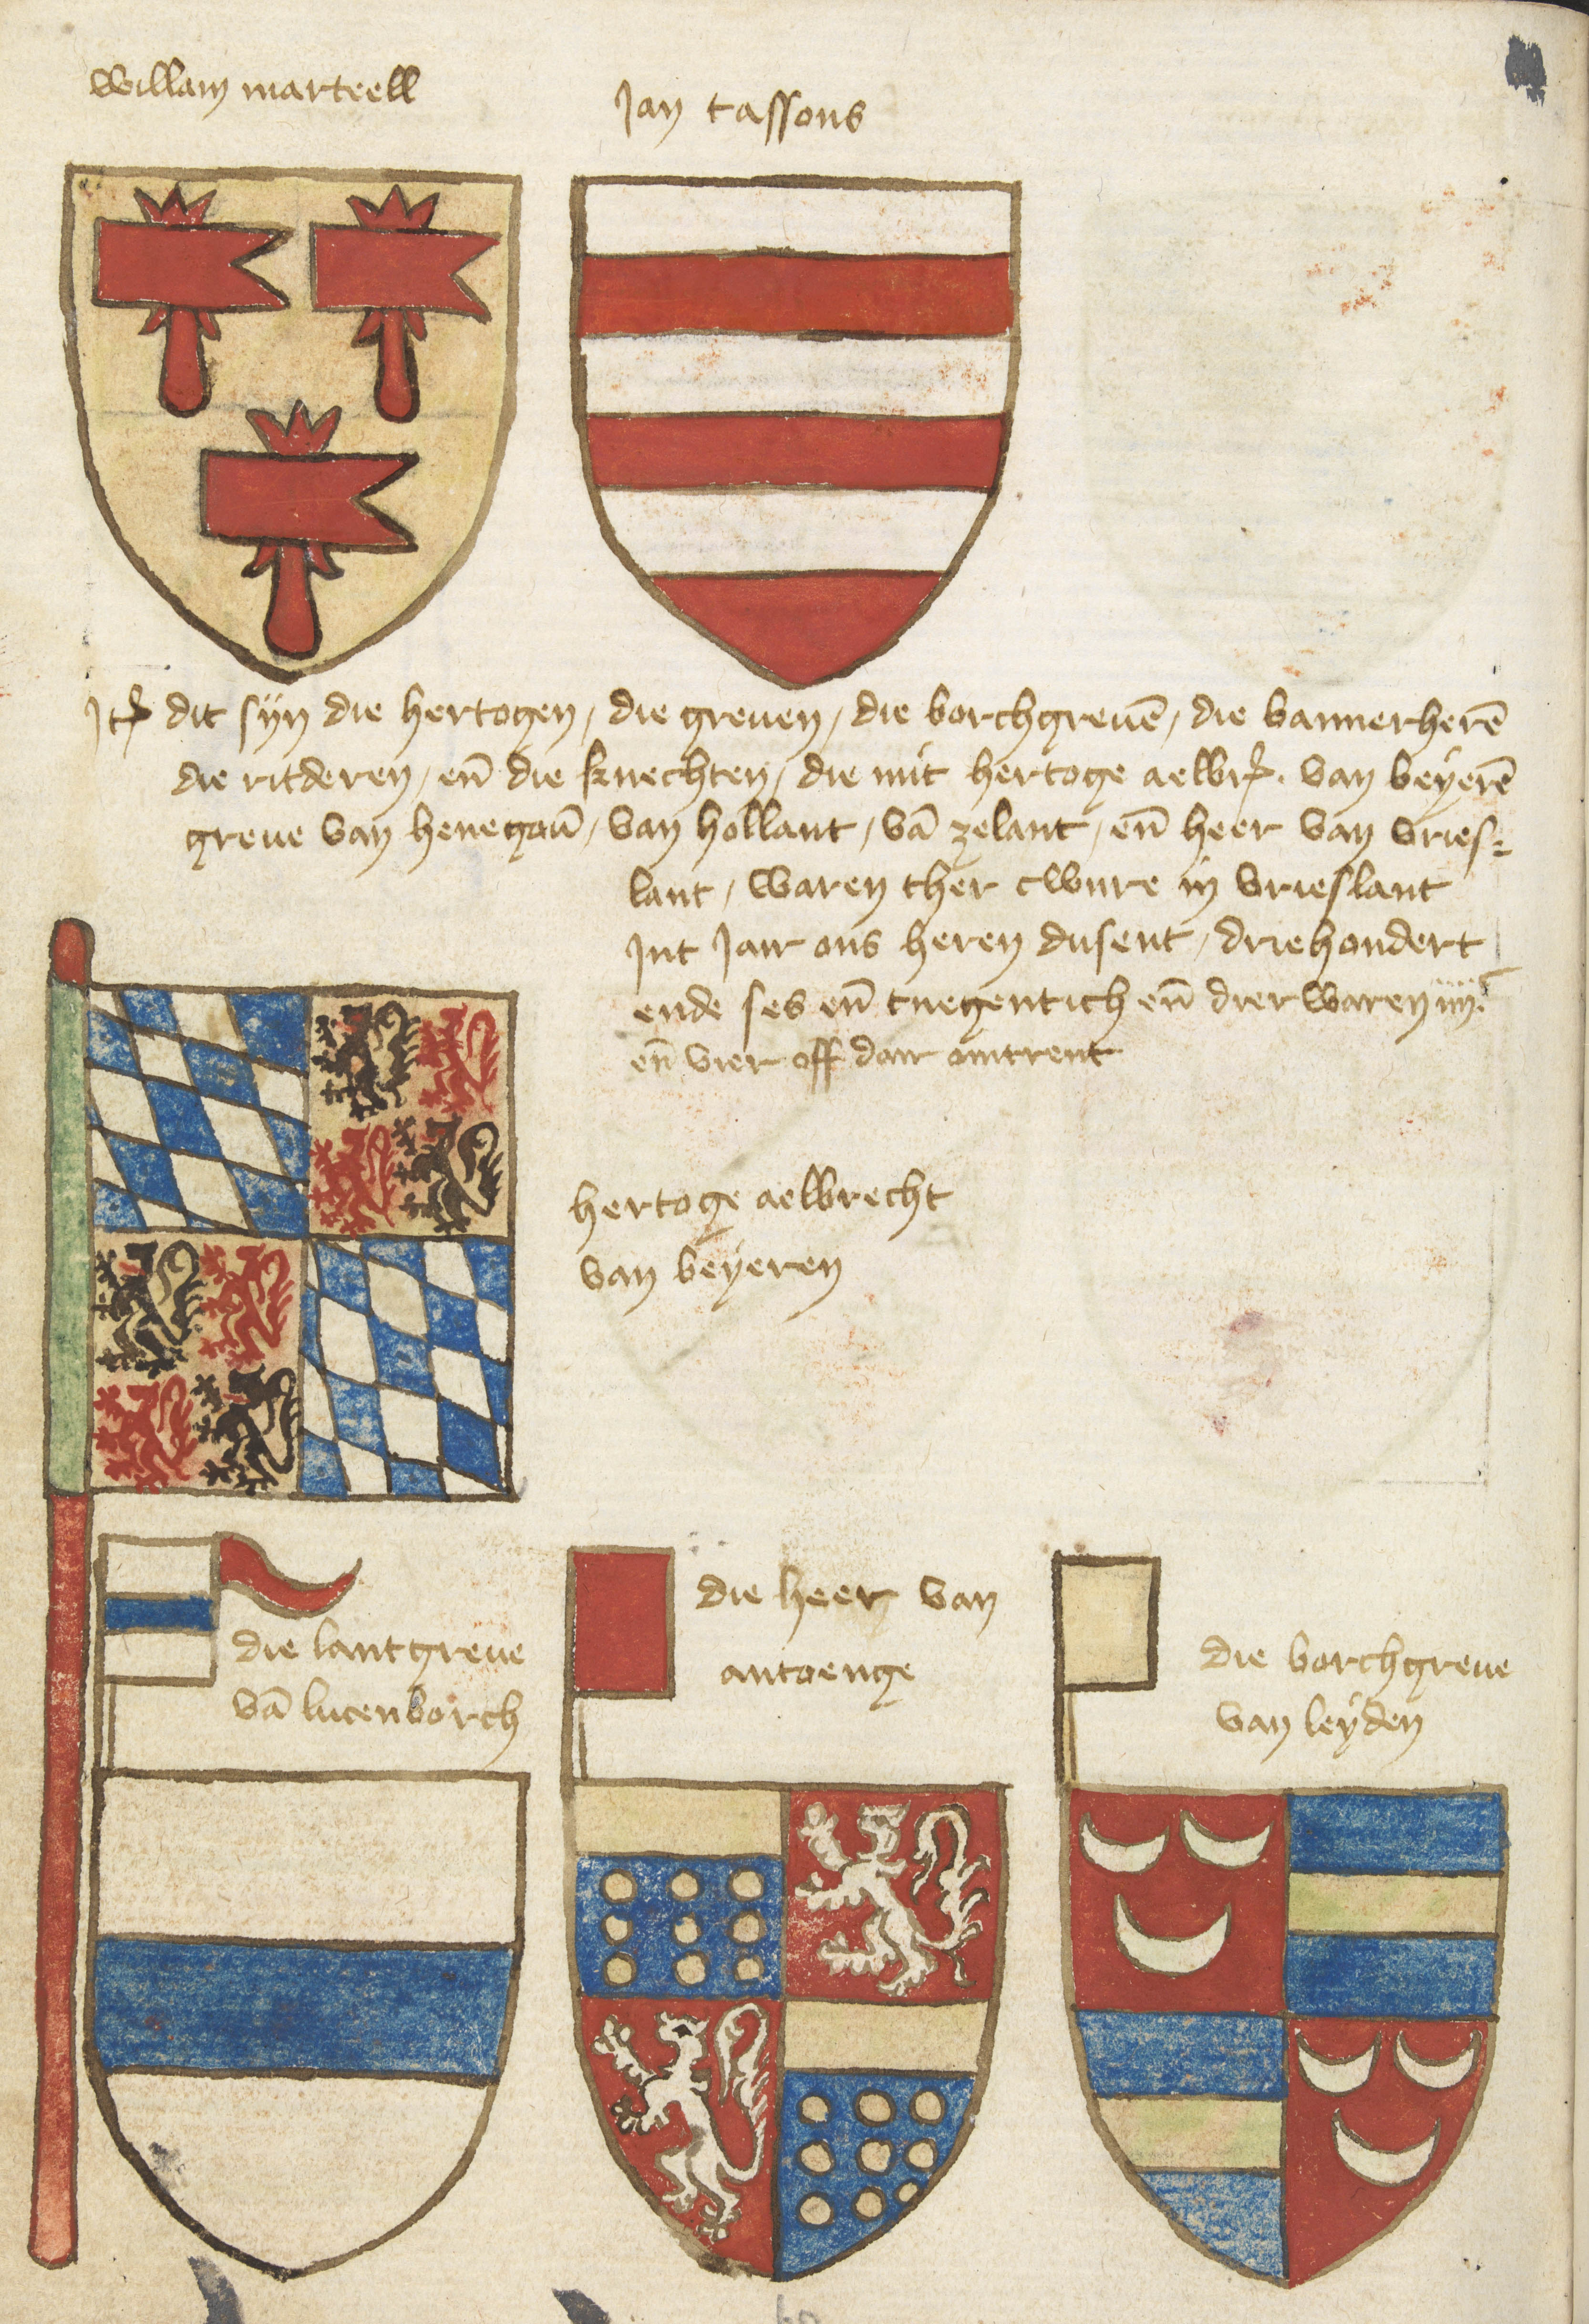 willam marteell
Jan tassons
Jtē dit sÿn die hertogen / die greuen / die borchgreuē / die bannerherē
die ritderen / en̄ die knechten / die mit hertoge aelbr̄. van beÿerē
greue van henegoū / van hollant / vā zelant / en̄ heer van vries=
lant / waren ther cwnre in vrieslant
Jnt Jair ons heren dusent / driehondert
ende ses en̄ tnegentich en̄ dier waren iiijc
en̄ vier off dair omtrent
hertoge aelbrecht
van beÿeren
die lantgreue
vā lucenborch
die heer van
antoenge
die borchgreue
van leÿden